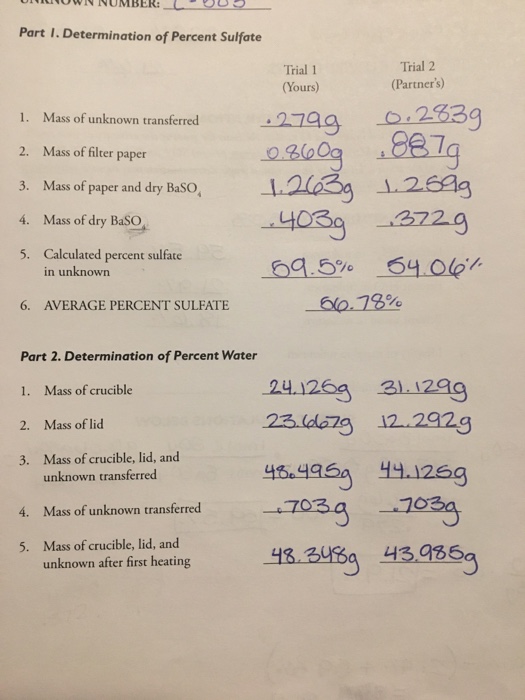 UNKNOWN NUMBER:
Part 1. Determination of Percent Sulfate
Trial 1 Trial 2
(Yours) (Partner's)
1. Mass of unknown transferred .279g 0.283g
2. Mass of filter paper 0.860g .887g
3. Mass of paper and dry BaSO4 1.263g 1.259g
4. Mass of dry BaSO4 .403g .372g
5. Calculated percent sulfate
in unknown 59.5% 54.06%
6. AVERAGE PERCENT SULFATE 56.78%
Part 2. Determination of Percent Water
1. Mass of crucible 24.126g 31.129g
2. Mass of lid 23.667g 12.292g
3. Mass of crucible, lid, and
unknown transferred 48.495g 44.125g
4. Mass of unknown transferred .703g .703g
5. Mass of crucible, lid, and
unknown after first heating 48.348g 43.985g